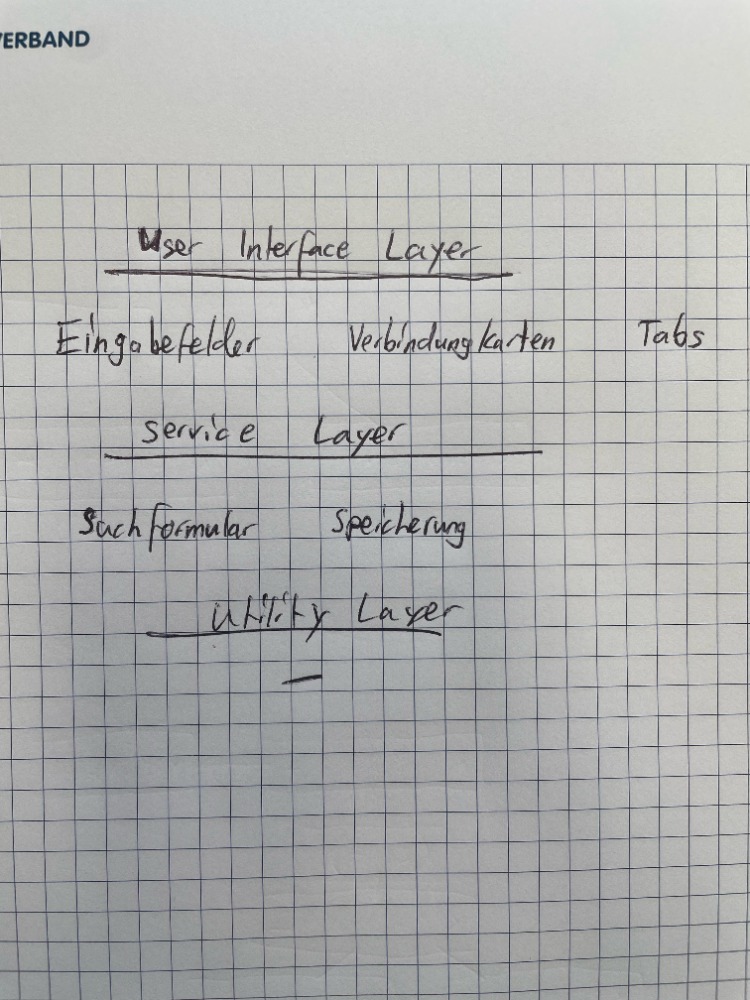 VERBAND
User Interface Layer
Eingabefelder Verbindungkarten Tabs
Service Layer
Suchformular Speicherung
Utility Layer
—